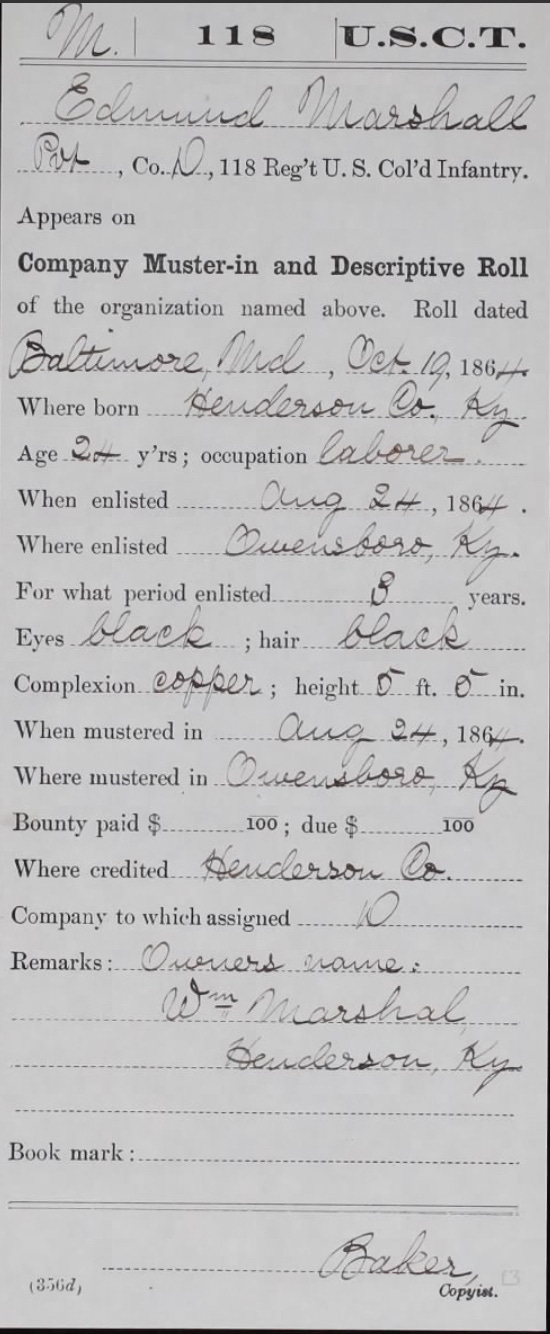 M. | 118 | U.S.C.T.
Edmund Marshall
Pvt, Co. D, 118 Reg't U. S. Col'd Infantry.
Appears on
Company Muster-in and Descriptive Roll
of the organization named above. Roll dated
Baltimore, Md, Oct. 19, 1864.
Where born Henderson Co., Ky.
Age 24 y'rs; occupation laborer.
When enlisted Aug 24, 1864.
Where enlisted Owensboro, Ky.
For what period enlisted 3 years.
Eyes black; hair black
Complexion copper; height 5 ft. 5 in.
When mustered in Aug 24, 1864.
Where mustered in Owensboro, Ky
Bounty paid $ 100; due $ 100
Where credited Henderson Co.
Company to which assigned D
Remarks: Owners name:
Wm Marshal,
Henderson, Ky
Book mark:
Baker,
(356d) Copyist.